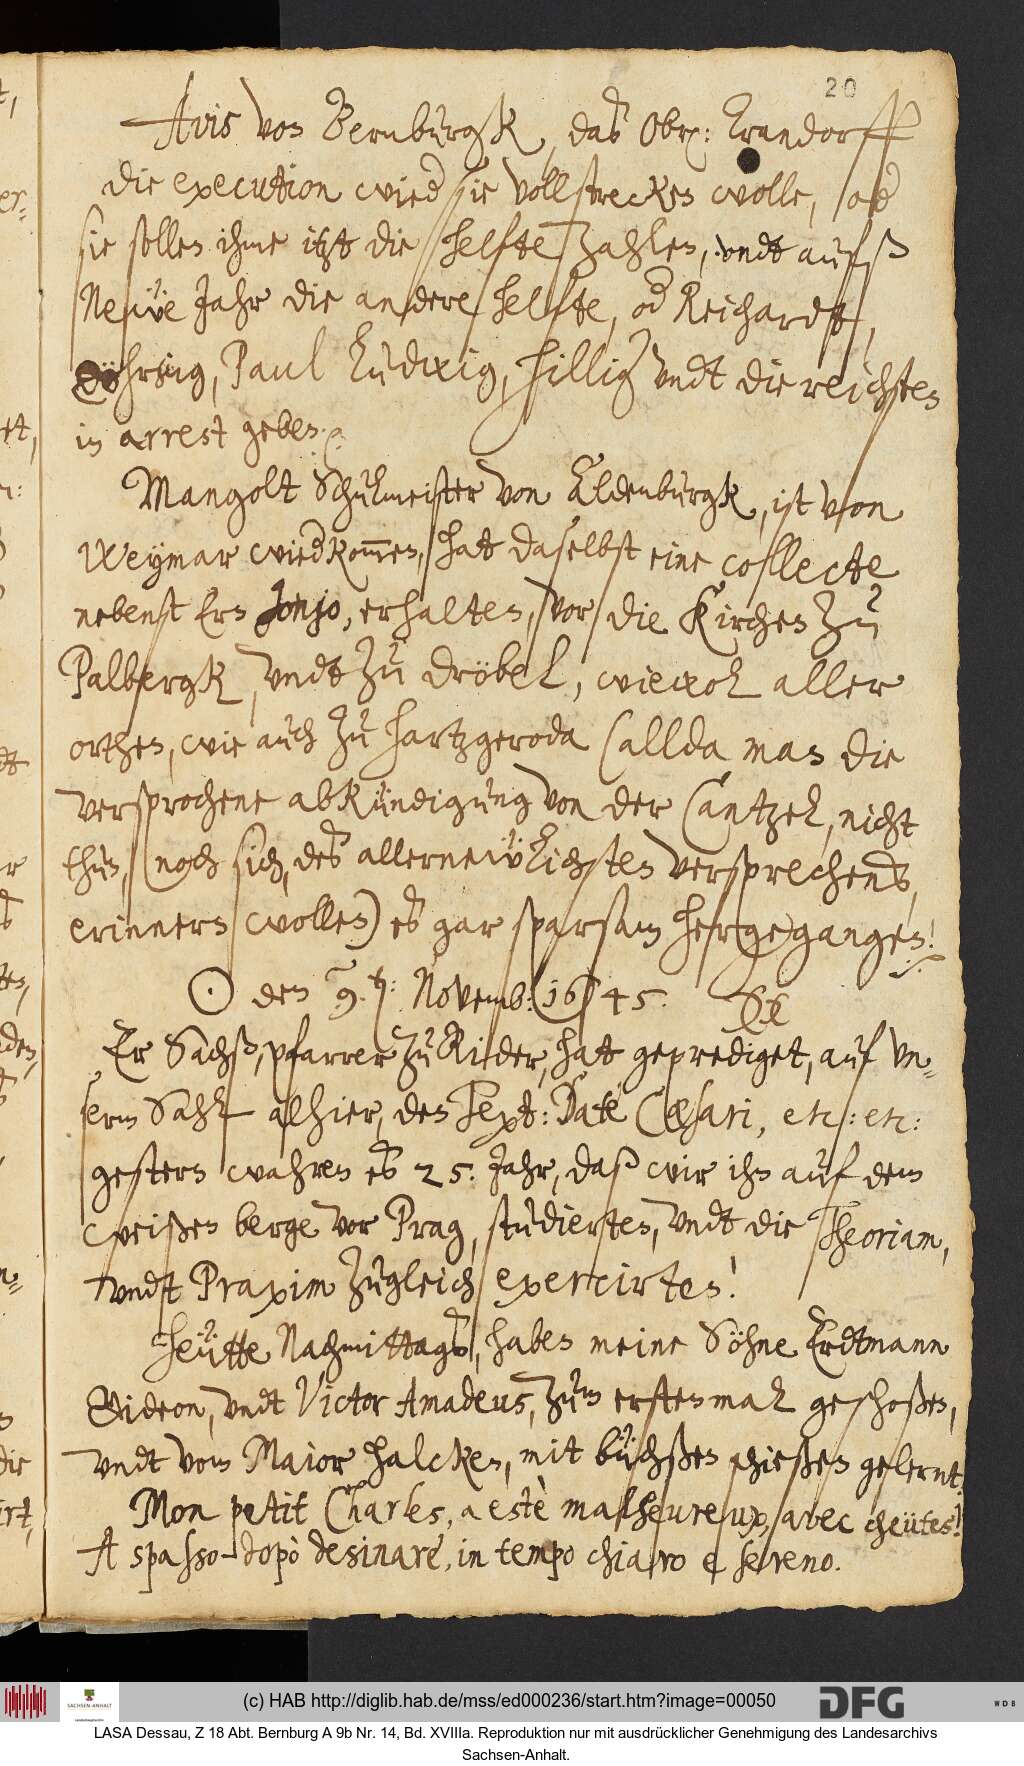 20
Avis von Bernburgk, das Obr: Krandorff
die execution wied sie vollstrecken wolle, od
sie sollen ihme itzt die helfte zahlen, undt aufs
Neüe Jahr die andere helfte, od Reichardt,
Röhrig, Paul Ludwig, Hillig undt die reichsten
in arrest geben.
Mangolt Schulmeister von Aldenburgk, ist von
Weymar wiedkommen, hatt daselbst eine collecte
nebenst Ern Jonjo, erhalten, vor die Kirchen zu
Palbergk, undt zu Dröbel, wiewol aller
orthen, wie auch zu Hartzgeroda (allda man die
versprochene abkündigung von der Cantzel, nicht
thun, noch sich, des allerneülichsten versprechens,
erinnern wollen) es gar sparsam hergegangen!
☉ den 9. Novemb: 1645.
Er Sachß, pfarrer zu Rieder, hatt geprediget, auf un-
serm Sahl alhier, den Text: Date Cæsari, etc: etc:
gestern wahren es 25. Jahr, daß wir ihn auf dem
weißen berge vor Prag, studierten, undt die Theoriam,
undt Praxim zugleich exercirten!
Heütte Nachmittags, haben meine Söhne Erdtmann
Gideon, undt Victor Amadeus, zum erstenmal geschoßen,
undt vom Maior Halcken, mit büchßen schießen gelernt.
Mon petit Charles, a estè malheureux, avec cheütes!
A spasso dopò desinare, in tempo chiaro e sereno.
(c) HAB http://diglib.hab.de/mss/ed000236/start.htm?image=00050
SACHSEN-ANHALT
DFG
WDB
LASA Dessau, Z 18 Abt. Bernburg A 9b Nr. 14, Bd. XVIIIa. Reproduktion nur mit ausdrücklicher Genehmigung des Landesarchivs
Sachsen-Anhalt.